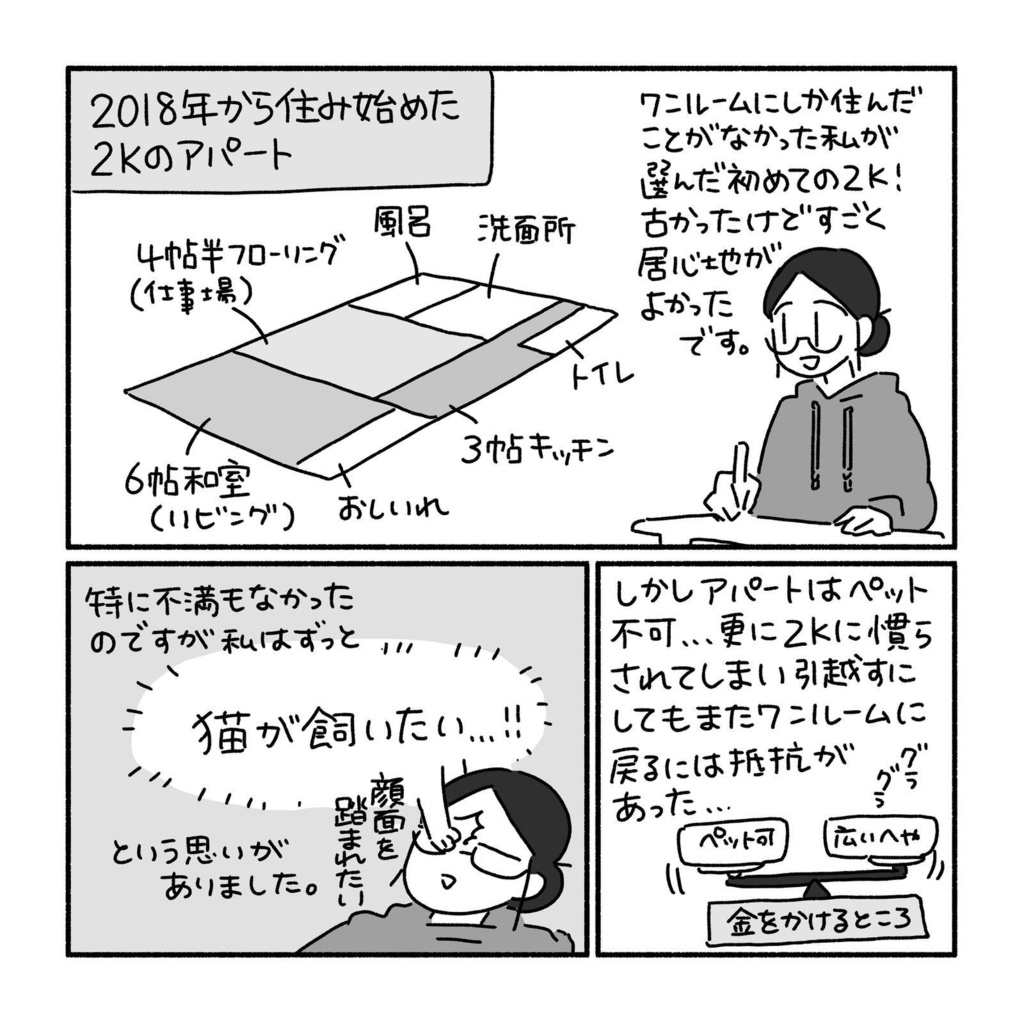 2018年から住み始めた
2Kのアパート
ワンルームにしか住んだ
ことがなかった私が
選んだ初めての2K!
古かったけどすごく
居心地が
よかった
です。
風呂
洗面所
4帖半フローリング
(仕事場)
トイレ
3帖キッチン
6帖和室
(リビング)
おしいれ
特に不満もなかった
のですが私はずっと
猫が飼いたい…!!
顔面を
踏まれたい
という思いが
ありました。
しかしアパートはペット
不可…更に2Kに慣ら
されてしまい引越すに
してもまたワンルームに
戻るには抵抗が
あった…
グラ
グラ
ペット可
広いへや
金をかけるところ